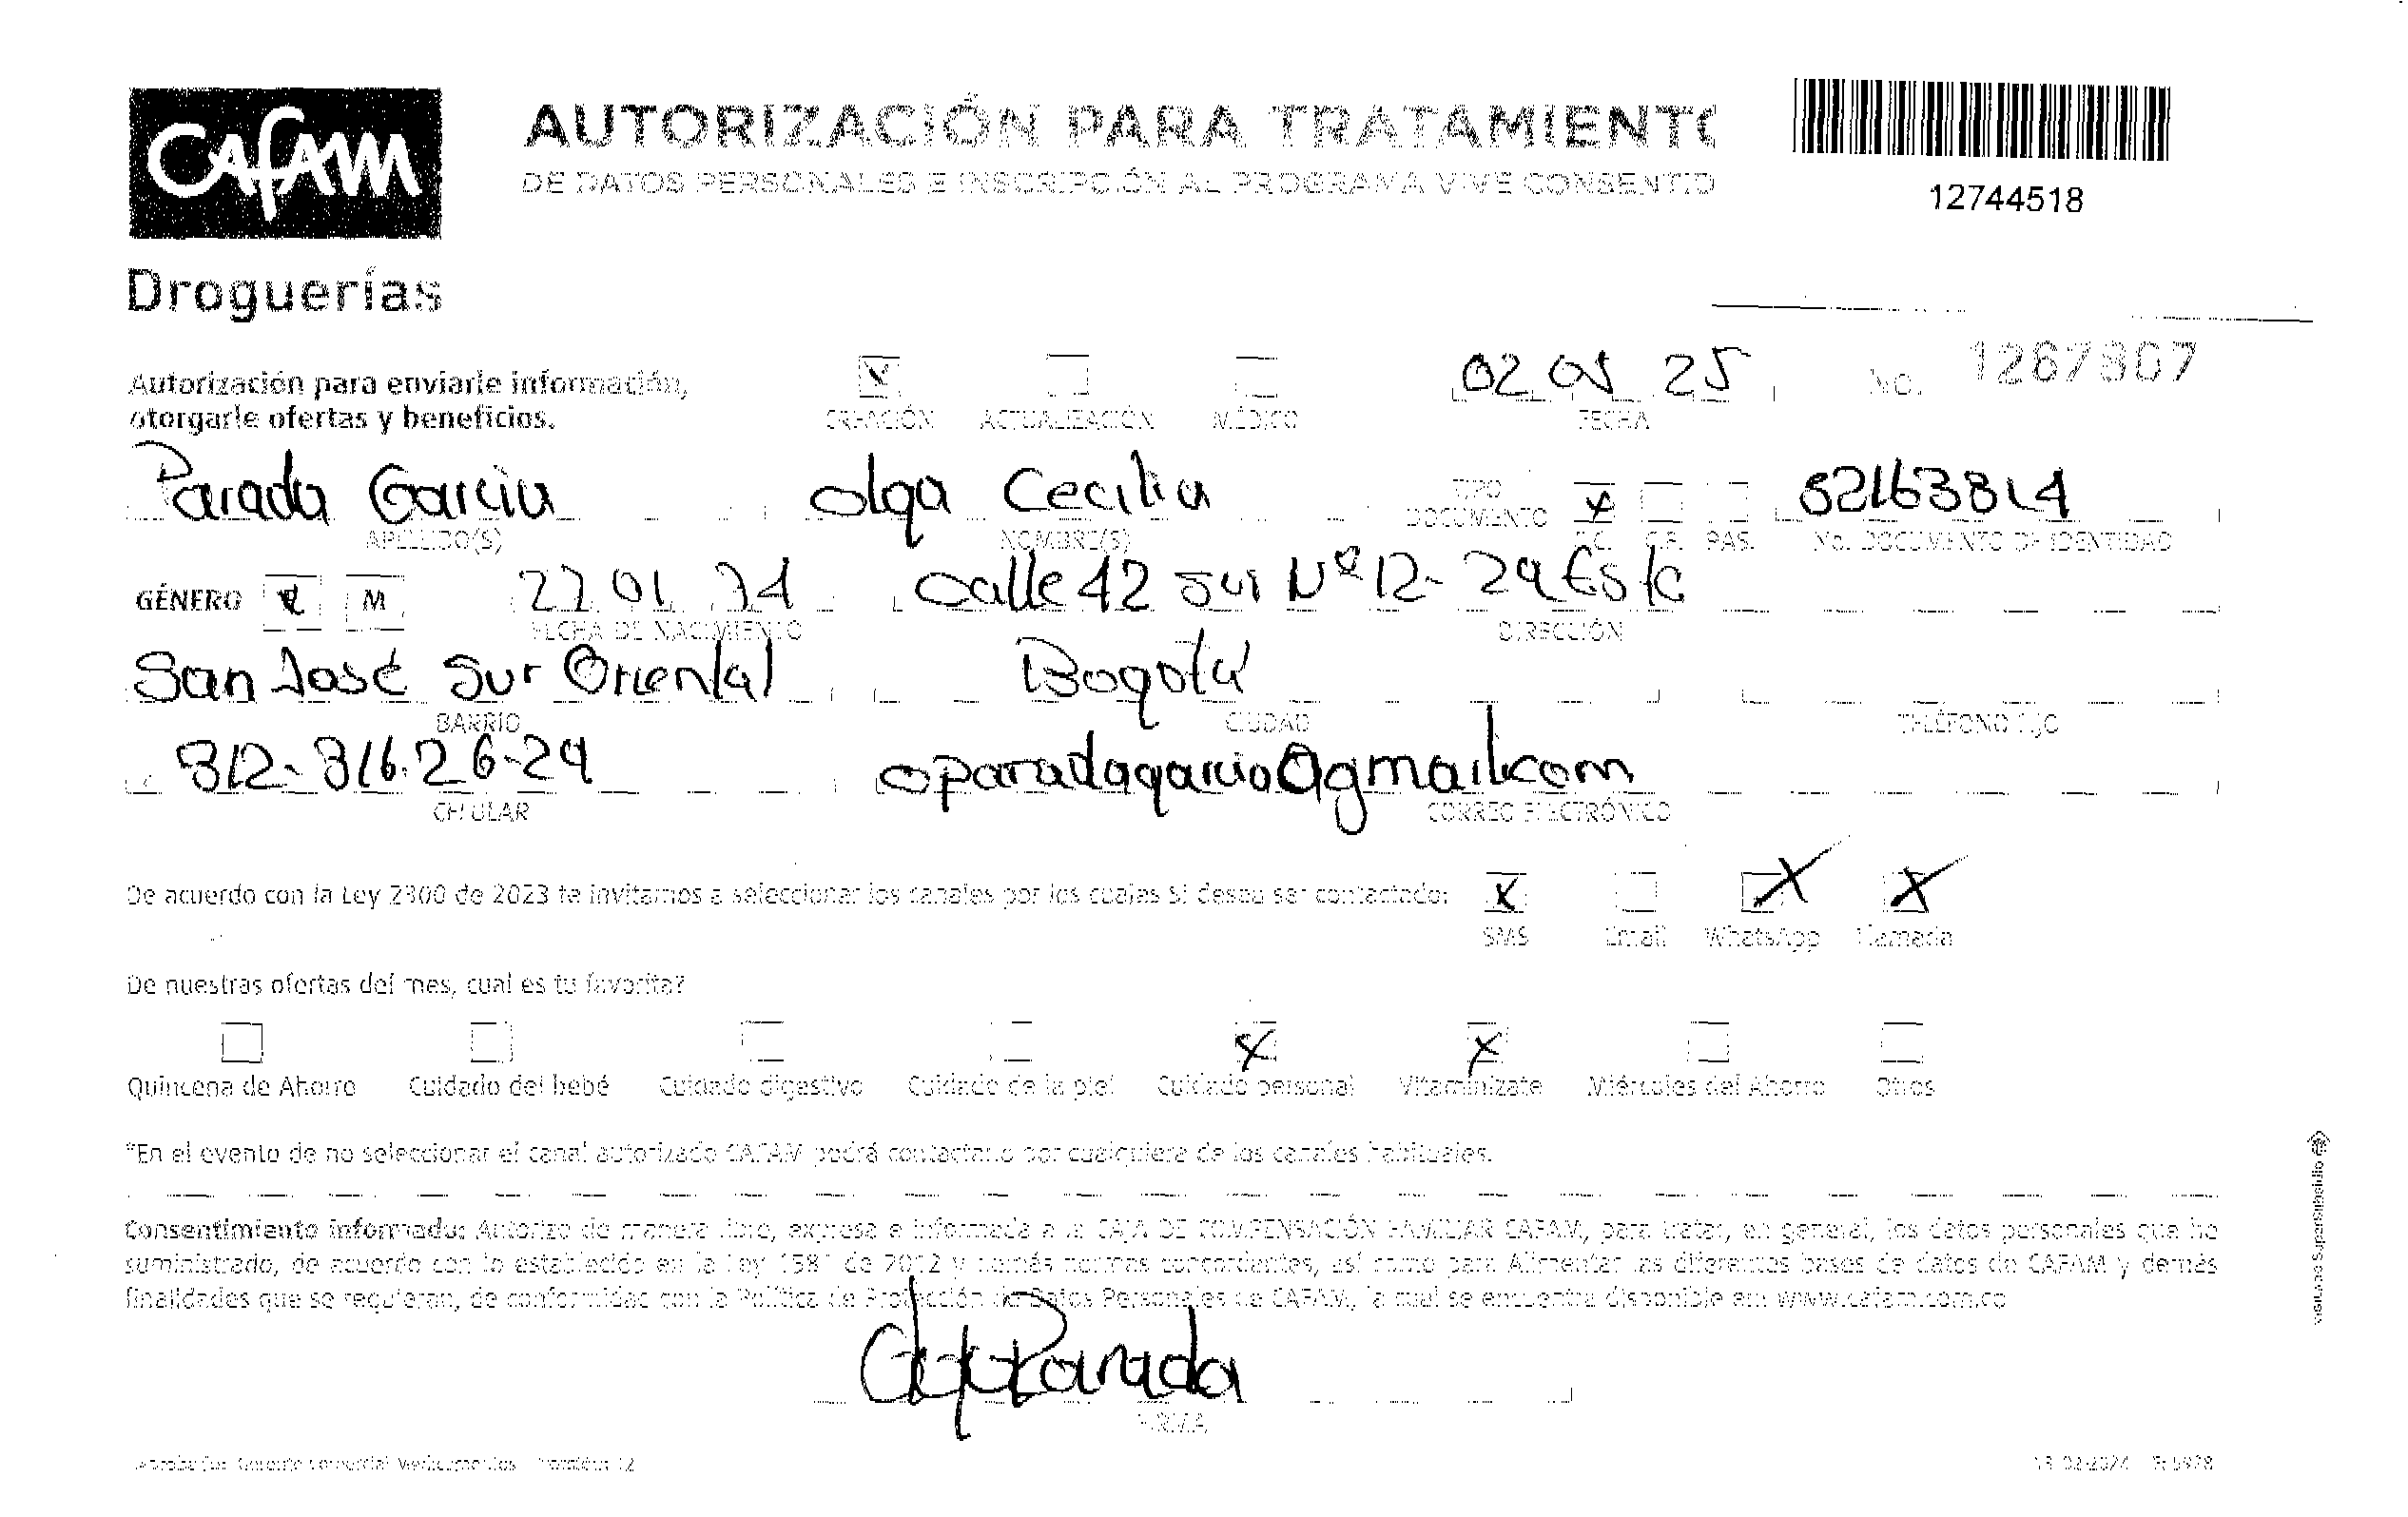 CAFAM
AUTORIZACIÓN PARA TRATAMIENTO
DE DATOS PERSONALES E INSCRIPCIÓN AL PROGRAMA VIVE CONSENTID
12744518
Droguerías
Autorización para enviarle información,
otorgarle ofertas y beneficios.
CREACIÓN ACTUALIZACIÓN MÉDICO
02 05 25
FECHA
No. 1267807
Parada Garcia Olga Cecilia
TIPO DOCUMENTO
APELLIDO(S) NOMBRE(S) C.C. C.E. PAS. No. DOCUMENTO DE IDENTIDAD
GÉNERO M 01 74 Calle 42 sur Nº 12- 29 Este
FECHA DE NACIMIENTO DIRECCIÓN
San José Sur Oriental Bogotá
BARRIO CIUDAD TELÉFONO FIJO
312-316.26-29 oparadagarcia@gmail.com
CELULAR CORREO ELECTRÓNICO
De acuerdo con la Ley 2300 de 2023 te invitamos a seleccionar los canales por los cuales si desea ser contactado:
SMS Email WhatsApp Llamada
De nuestras ofertas del mes, cual es tu favorita?
Quincena de Ahorro Cuidado del bebé Cuidado digestivo Cuidado de la piel Cuidado personal Vitamínizate Miércoles del Ahorro Otros
*En el evento de no seleccionar el canal autorizado CAFAM podrá contactarlo por cualquiera de los canales habituales.
Consentimiento informado: Autorizo de manera libre, expresa e informada a la CAJA DE COMPENSACIÓN FAMILIAR CAFAM, para tratar, en general, los datos personales que he
suministrado, de acuerdo con lo establecido en la Ley 1581 de 2012 y demás normas concordantes, así como para Alimentar las diferentes bases de datos de CAFAM y demás
finalidades que se requieran, de conformidad con la Política de Protección de Datos Personales de CAFAM, la cual se encuentra disponible en: www.cafam.com.co
Olga Parada
FIRMA
VIGILADO SuperSubsidio